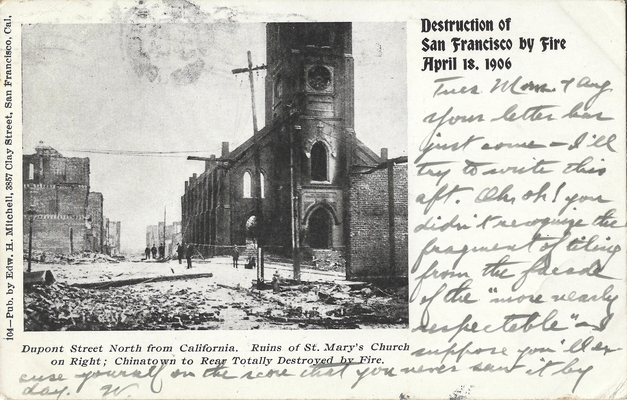 104—Pub. by Edw. H. Mitchell, 3857 Clay Street, San Francisco, Cal.
Destruction of
San Francisco by Fire
April 18, 1906
Dupont Street North from California. Ruins of St. Mary's Church
on Right; Chinatown to Rear Totally Destroyed by Fire.
Tues. Morn. 7 Aug
Your letter has
just come – I'll
try to write this
aft. Oh, oh! you
didn't recognize the
fragment of tiling
from the facade
of the "more nearly
respectable" – I
suppose you'll ex
cuse yourself on the score that you never saw it by
day. W.